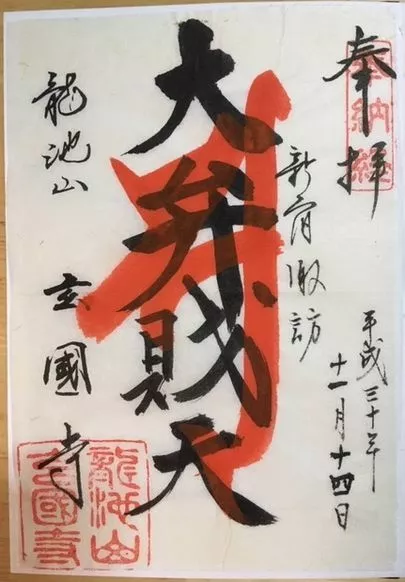 奉拝
奉納經
新宿諏訪
平成三十年
十一月十四日
大弁財天
龍池山
玄國寺
龍池山
玄國寺